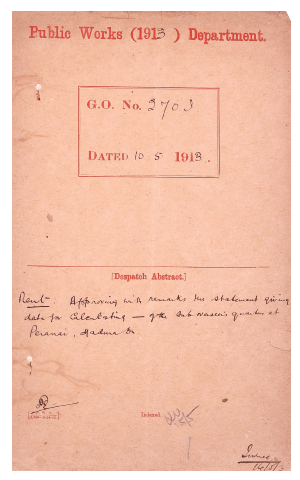 Public Works (1913) Department.
G.O. No. 2703
DATED 10 5 1913.
[Despatch Abstract.]
Rent. Approving with remarks the statement giving
data for calculating — of the Sub overseer's quarters at
Peranai, Madura Dt
Indexed.